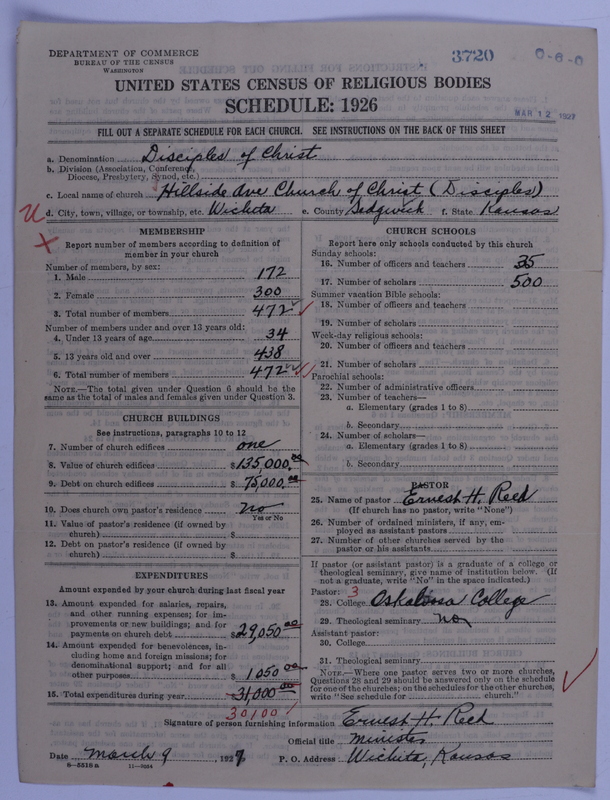 DEPARTMENT OF COMMERCE
BUREAU OF THE CENSUS
WASHINGTON
3720
0-6-0
UNITED STATES CENSUS OF RELIGIOUS BODIES
SCHEDULE: 1926
MAR 12 1927
FILL OUT A SEPARATE SCHEDULE FOR EACH CHURCH. SEE INSTRUCTIONS ON THE BACK OF THIS SHEET
a. Denomination Disciples of Christ
b. Division (Association, Conference, Diocese, Presbytery, Synod, etc.)
c. Local name of church Hillside Ave Church of Christ (Disciples)
d. City, town, village, or township, etc. Wichita e. County Sedgwick f. State Kansas
MEMBERSHIP
Report number of members according to definition of
member in your church
Number of members, by sex:
1. Male 172
2. Female 300
3. Total number of members 472
Number of members under and over 13 years old:
4. Under 13 years of age 34
5. 13 years old and over 438
6. Total number of members 472
NOTE.—The total given under Question 6 should be the
same as the total of males and females given under Question 3.
CHURCH BUILDINGS
See instructions, paragraphs 10 to 12
7. Number of church edifices one
8. Value of church edifices $135,000.00
9. Debt on church edifices $75,000.00
10. Does church own pastor's residence? No
Yes or No
11. Value of pastor's residence (if owned by
church) $
12. Debt on pastor's residence (if owned by
church) $
EXPENDITURES
Amount expended by your church during last fiscal year
13. Amount expended for salaries, repairs,
and other running expenses; for im-
provements or new buildings; and for
payments on church debt $29,050.00
14. Amount expended for benevolences, in-
cluding home and foreign missions; for
denominational support; and for all
other purposes $1050.00
15. Total expenditures during year 31,000.00
30,100
CHURCH SCHOOLS
Report here only schools conducted by this church
Sunday schools:
16. Number of officers and teachers 35
17. Number of scholars 500
Summer vacation Bible schools:
18. Number of officers and teachers
19. Number of scholars
Week-day religious schools:
20. Number of officers and teachers
21. Number of scholars
Parochial schools:
22. Number of administrative officers
23. Number of teachers—
a. Elementary (grades 1 to 8)
b. Secondary
24. Number of scholars—
a. Elementary (grades 1 to 8)
b. Secondary
PASTOR
25. Name of pastor Ernest H. Reed
(If church has no pastor, write "None")
26. Number of ordained ministers, if any, em-
ployed as assistant pastors
27. Number of other churches served by the
pastor or his assistants
If pastor (or assistant pastor) is a graduate of a college or
theological seminary, give name of institution below. (If
not a graduate, write "No" in the space indicated.)
Pastor: 3
28. College Oskaloosa College
29. Theological seminary no
Assistant pastor:
30. College
31. Theological seminary
NOTE.—Where one pastor serves two or more churches,
Questions 28 and 29 should be answered only on the schedule
for one of the churches; on the schedules for the other churches,
write "See schedule for church."
Signature of person furnishing information Ernest H. Reed
Official title Minister
Date March 9 1927 P. O. Address Wichita, Kansas
8-5518a 11-9034